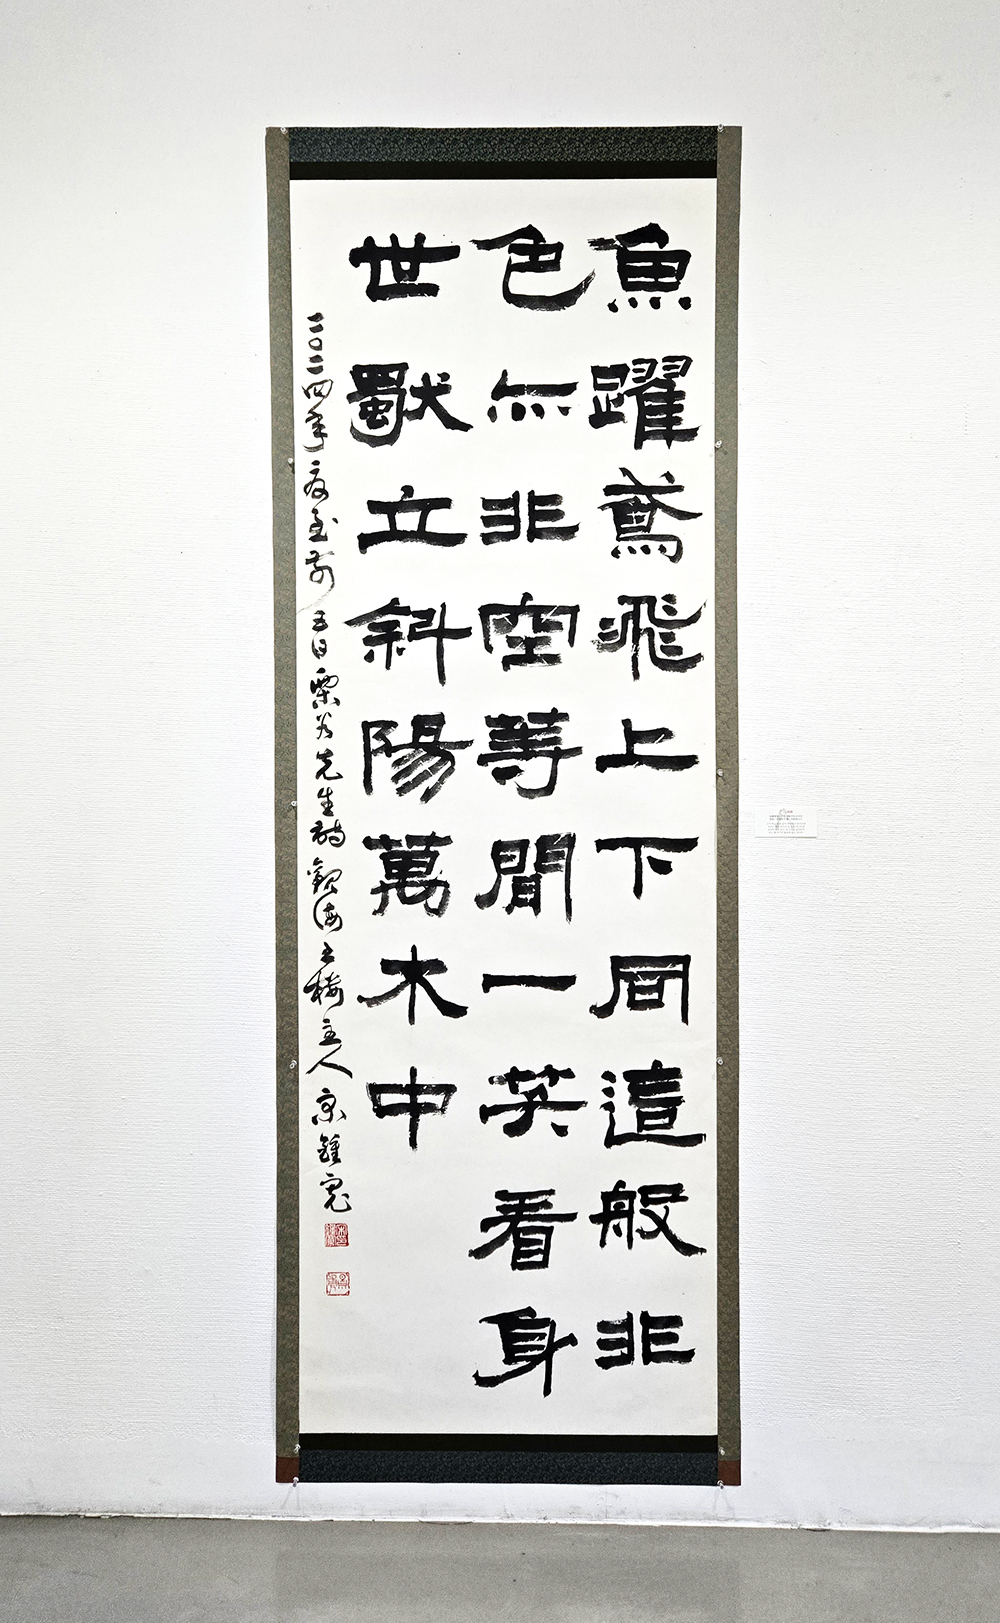 魚躍鳶飛上下同這般非
色亦非空等閒一笑看身
世獨立斜陽萬木中
二〇二四年夏至前五日栗谷先生詩觀海之樓主人